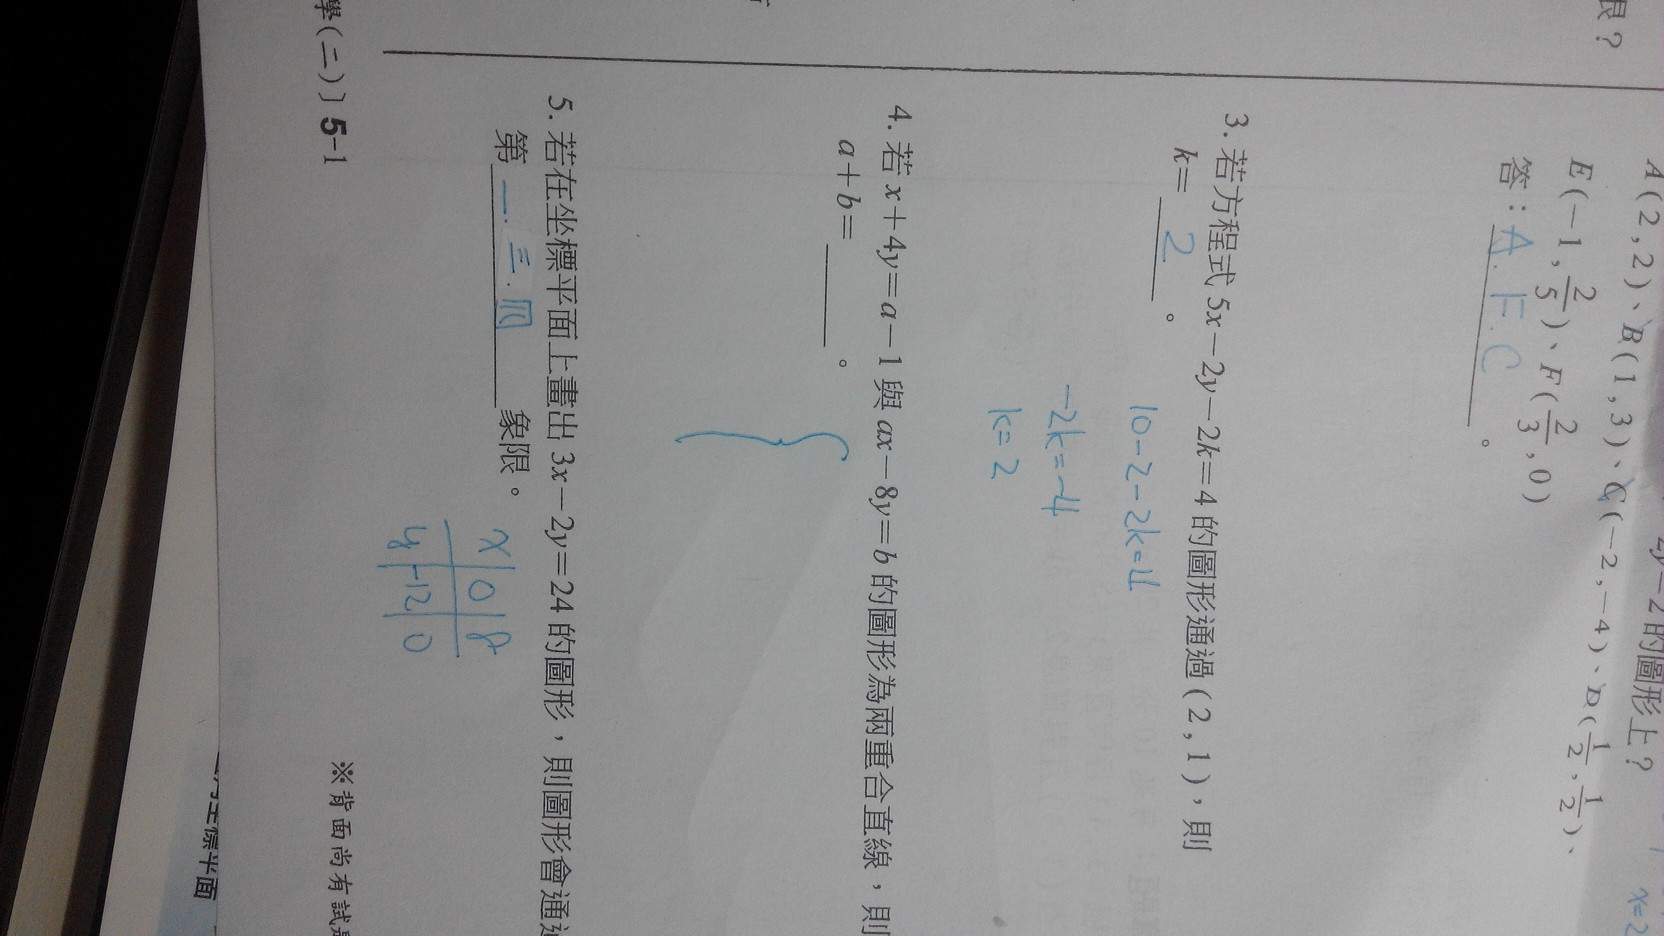 限？
2y－2的圖形上？
A(2,2)、B(1,3)、C(－2,－4)、D(1/2,1/2)、
E(－1,2/5)、F(2/3,0)
答：A.F.C。
x=2
3. 若方程式 5x－2y－2k=4 的圖形通過(2,1)，則
k= 2 。
10-2-2k=4
-2k=-4
k=2
4. 若 x+4y=a－1 與 ax－8y=b 的圖形為兩重合直線，則
a+b= 。
5. 若在坐標平面上畫出 3x－2y=24 的圖形，則圖形會通過
第 一.三.四 象限。
x 0 8
y -12 0
學(二)〕5-1
※背面尚有試題
坐標平面